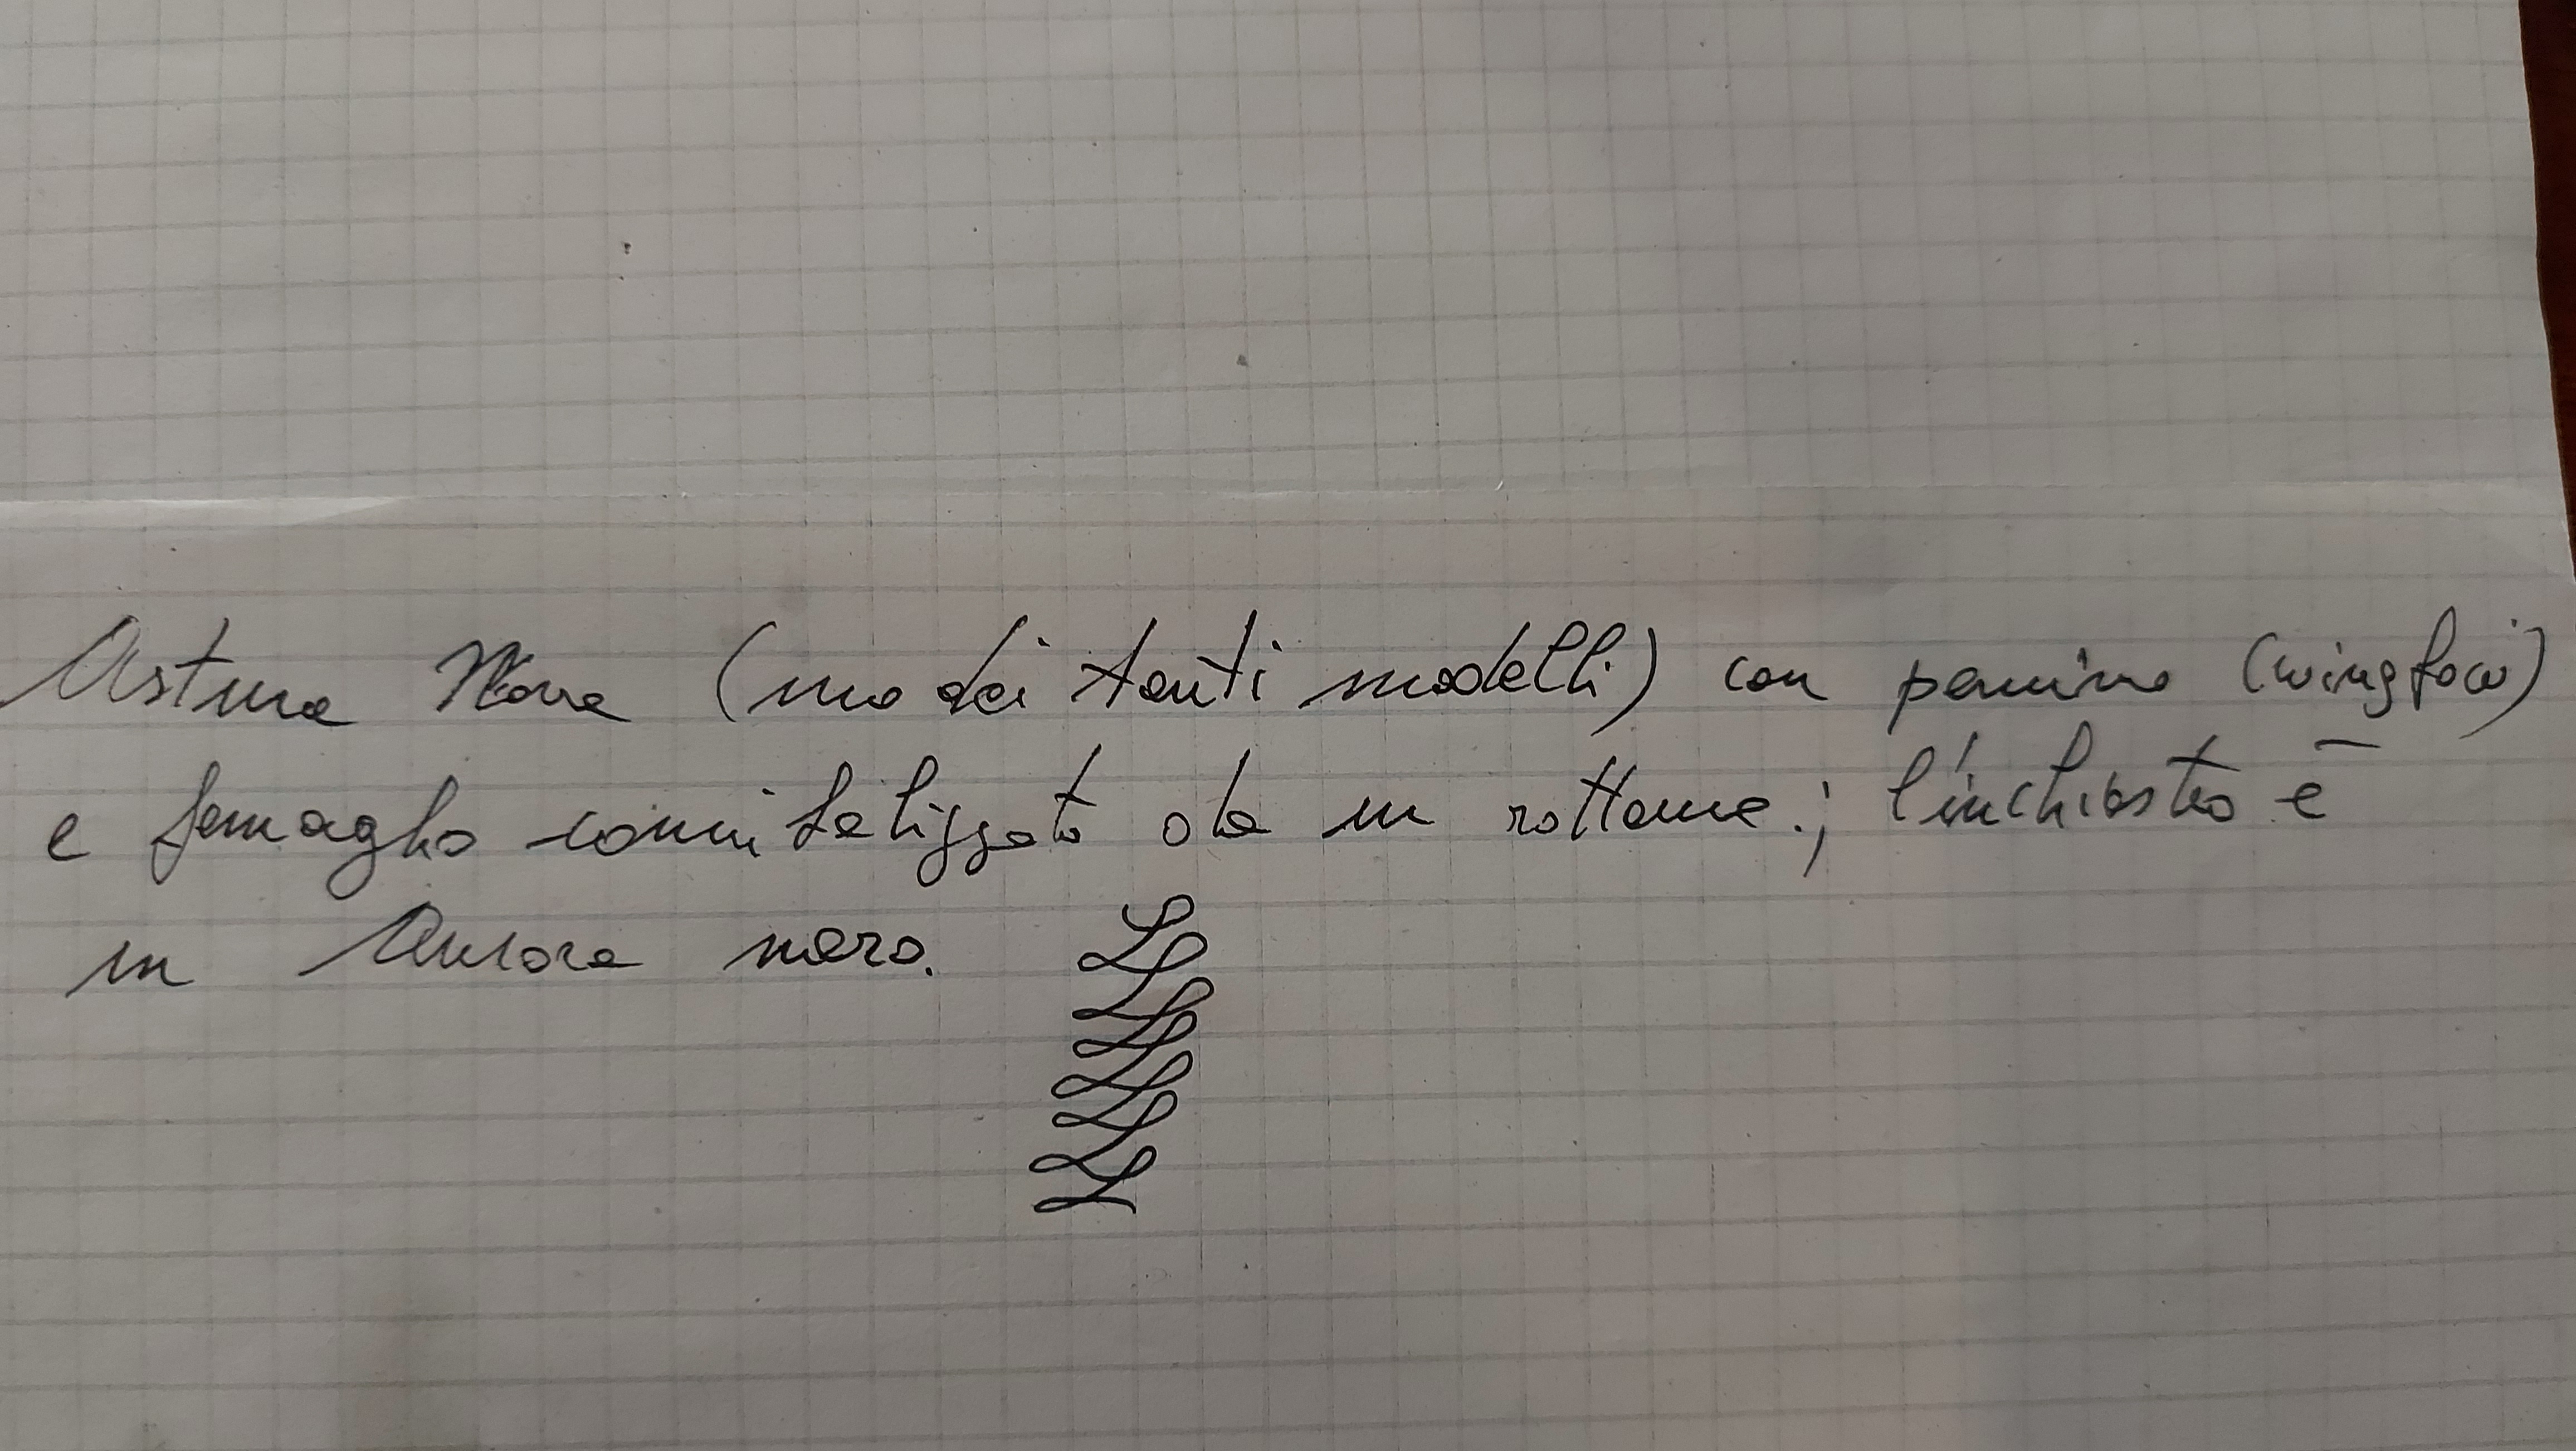 Astura Nova (uno dei tanti modelli) con pennino (wing fow)
e fermaglio cannibalizzato da un rottame.; l'inchiostro è
un Aurora nero.